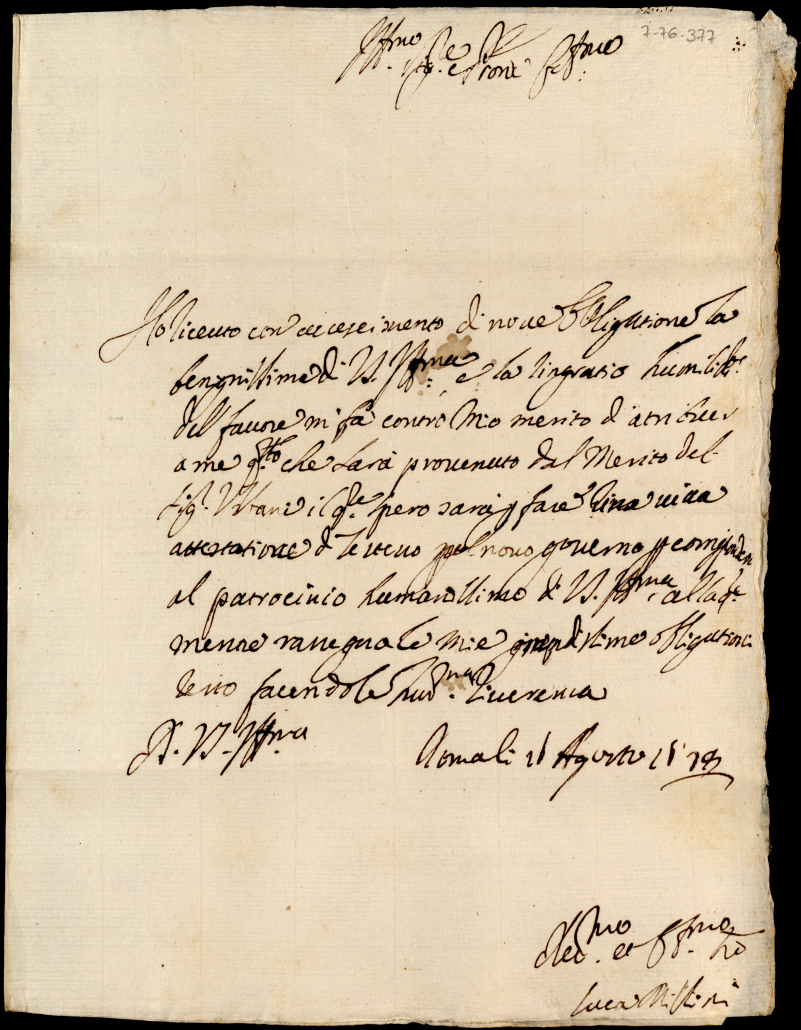 7-76-377
Ill.mo Sig.re e Pron Col.mo
Ho riceuto con accrescimento di noue obligatione la
benignissima di V.S. Ill.ma, e la ringratio humilis.
del fauore mi fà contro mio merito d'atribuer
a me q.to che sarà prouenuto dal merito del
Sig. Vrbani il q.le spero sarà p fare una uiua
attestatione di se stesso nel nouo gouerno p
al patrocinio humanissimo di V.S. Ill.ma alla q.le
mentre rassegno le mie grandissime obligationi
resto facendole hum.ma riuerenza
D. V.S. Ill.ma
li 21 Agosto
Deu.mo et Obl.mo
Luca